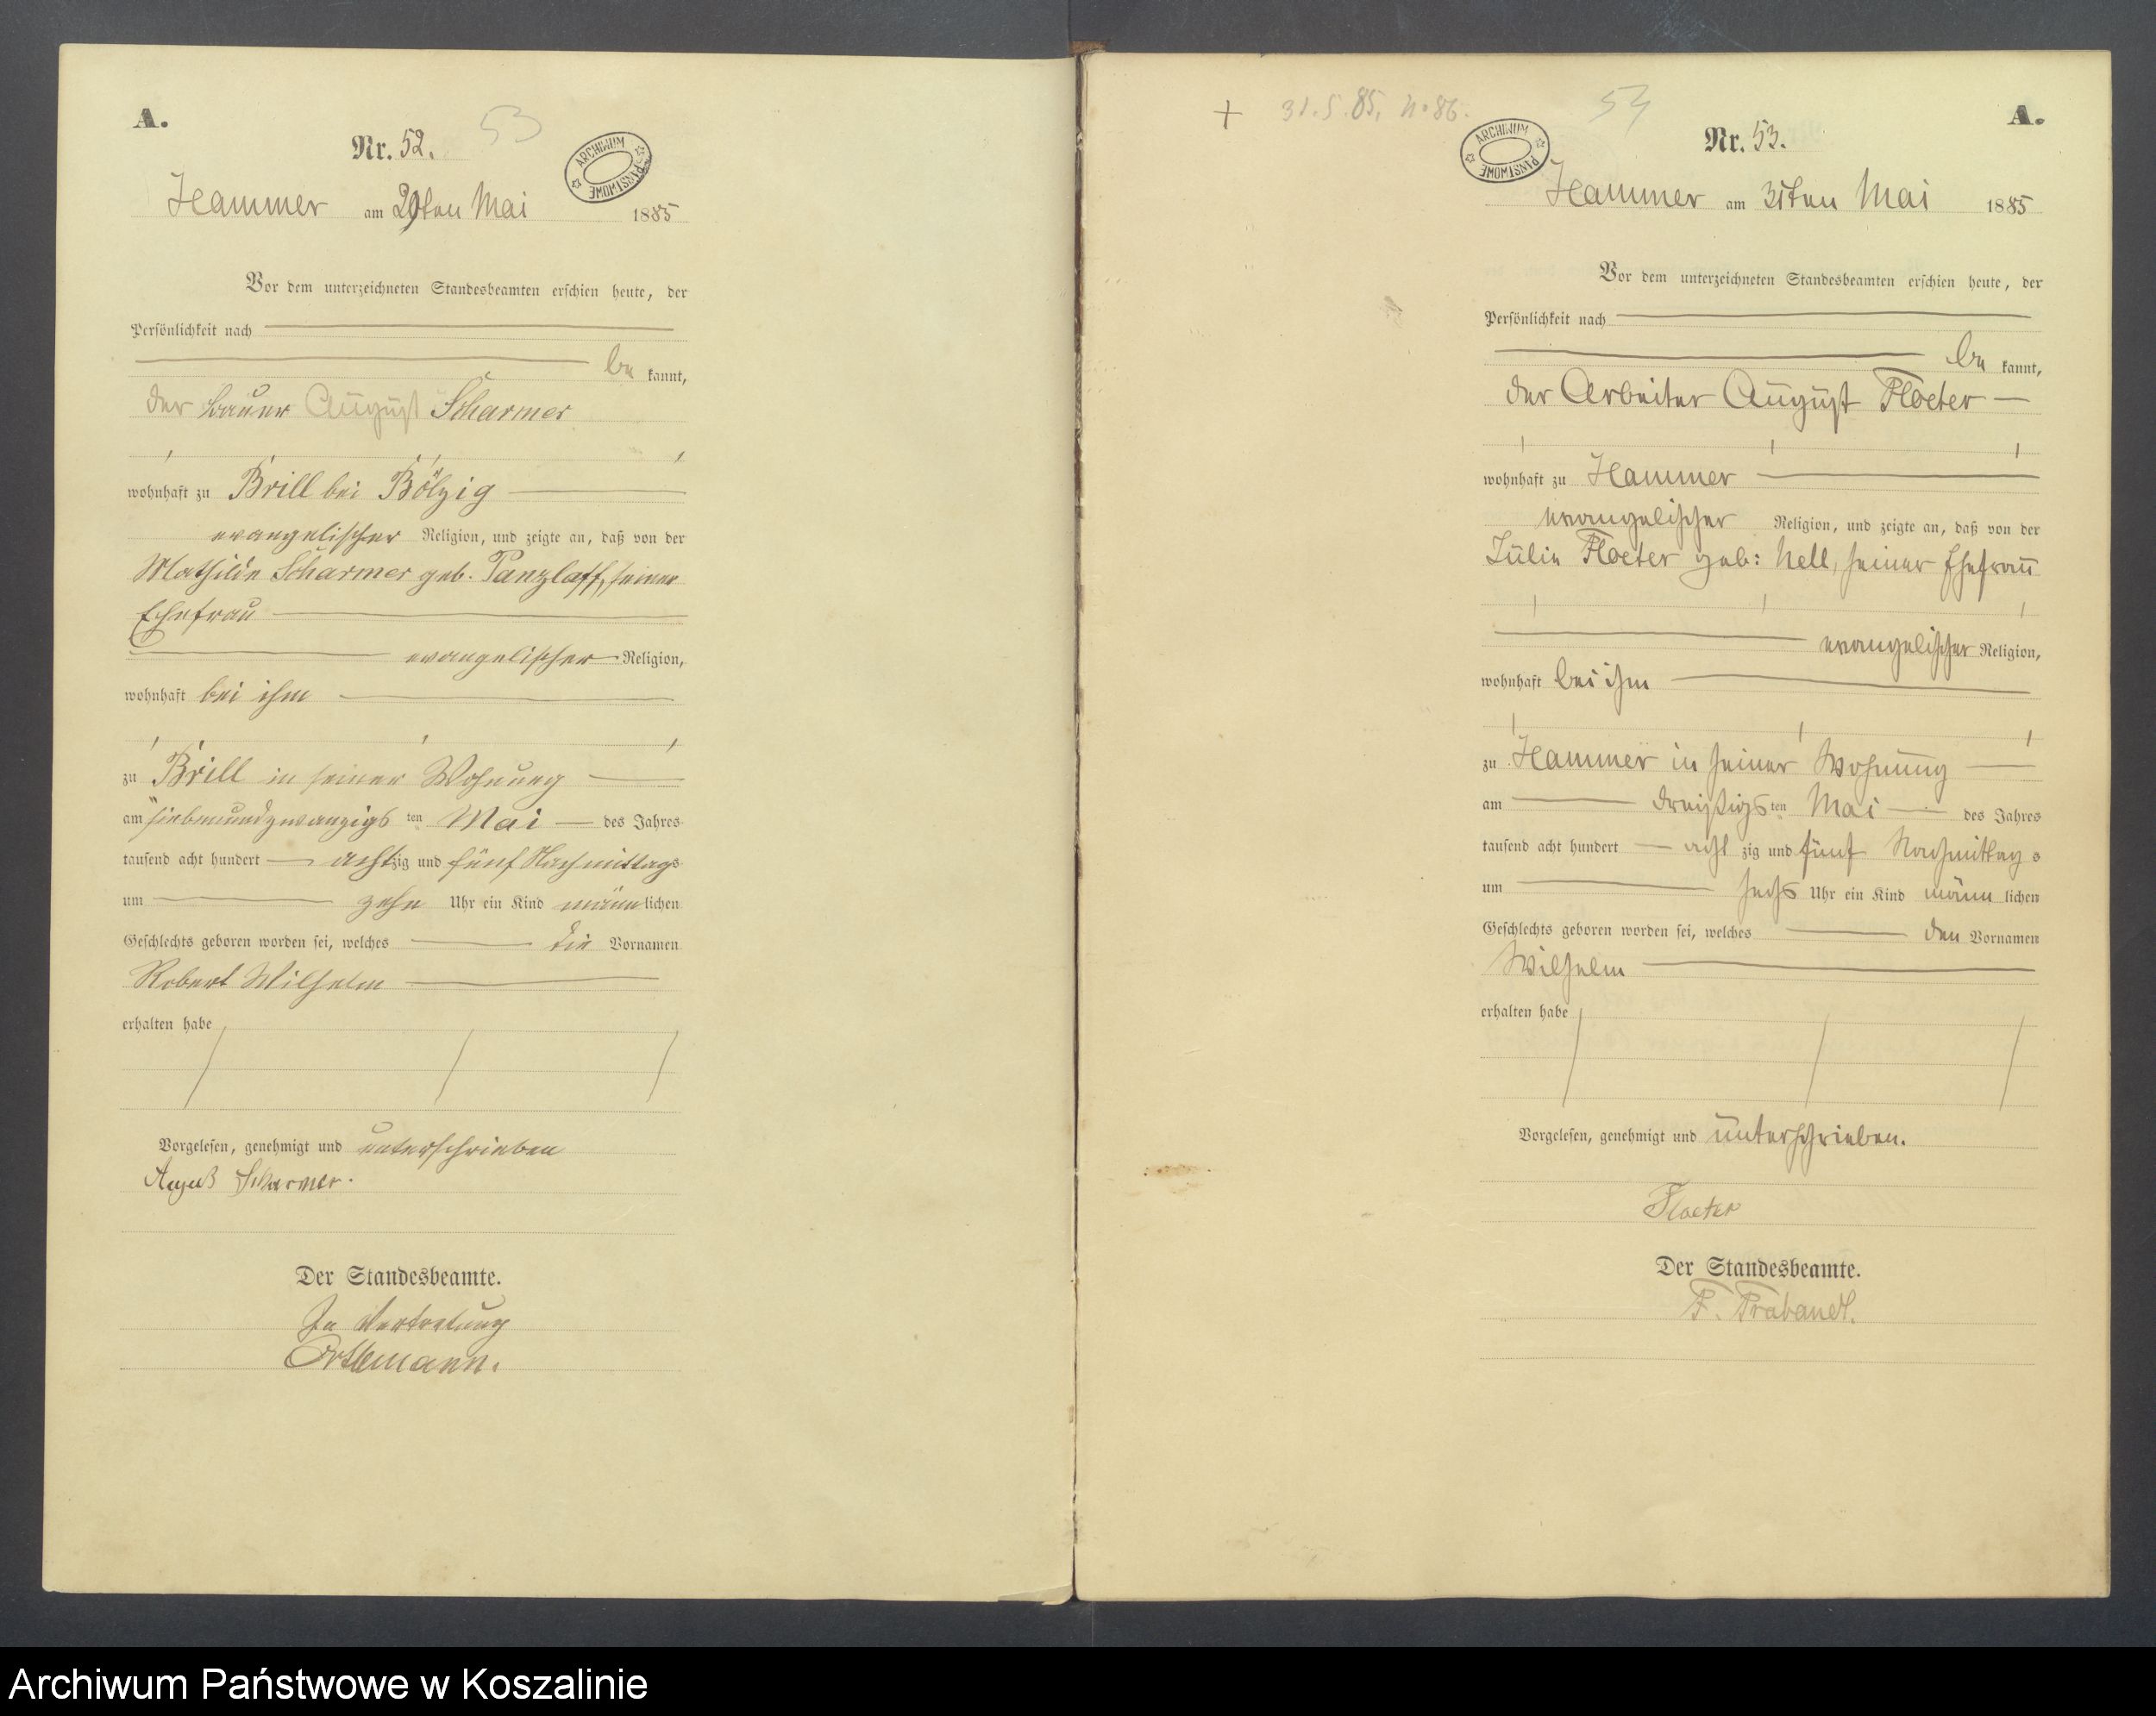 A.
53
Nr. 52.
ARCHIWUM PAŃSTWOWE
Hammer am 29ten Mai 1885
Vor dem unterzeichneten Standesbeamten erschien heute, der
Persönlichkeit nach
be kannt,
der Bauer August Scharmer
wohnhaft zu Brill bei Bölzig
evangelischer Religion, und zeigte an, daß von der
Mathilde Scharmer geb. Panzlaff, seiner
Ehefrau
evangelischer Religion,
wohnhaft bei ihm
zu Brill in seiner Wohnung
am siebenundzwanzigs ten Mai des Jahres
tausend acht hundert achtzig und fünf Nachmittags
um zehn Uhr ein Kind männlichen
Geschlechts geboren worden sei, welches die Vornamen
Robert Wilhelm
erhalten habe
Vorgelesen, genehmigt und unterschrieben
August Scharmer.
Der Standesbeamte.
In Vertretung
Orthmann.
+ 31.5.85. N. 86.
54
A.
ARCHIWUM PAŃSTWOWE
Nr. 53.
Hammer am 31ten Mai 1885
Vor dem unterzeichneten Standesbeamten erschien heute, der
Persönlichkeit nach
be kannt,
der Arbeiter August Floeter
wohnhaft zu Hammer
evangelischer Religion, und zeigte an, daß von der
Julie Floeter geb: Nell, seiner Ehefrau
evangelischer Religion,
wohnhaft bei ihm
zu Hammer in seiner Wohnung
am dreißigs ten Mai des Jahres
tausend acht hundert acht zig und fünf Nachmittag s
um sechs Uhr ein Kind männ lichen
Geschlechts geboren worden sei, welches den Vornamen
Wilhelm
erhalten habe
Vorgelesen, genehmigt und unterschrieben.
Floeter
Der Standesbeamte.
F. Trabandt.
Archiwum Państwowe w Koszalinie